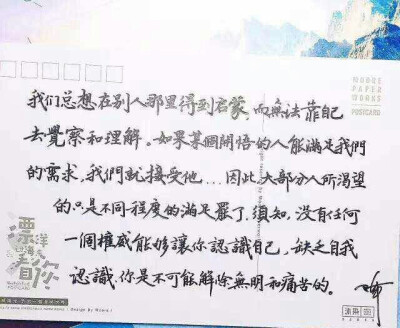 MOORE
PAPER
WORKS
POSTCARD
我们总想在别人那里得到启蒙,而無法靠自己
去覺察和理解。如果某個開悟的人能滿足我們
的需求,我們就接受他...因此,大部分人所渴望
的只是不同程度的滿足罷了,須知,没有任何
一個權威能够讓你認識自己,缺乏自我
認識,你是不可能解除無明和痛苦的。
漂洋
过海
看你